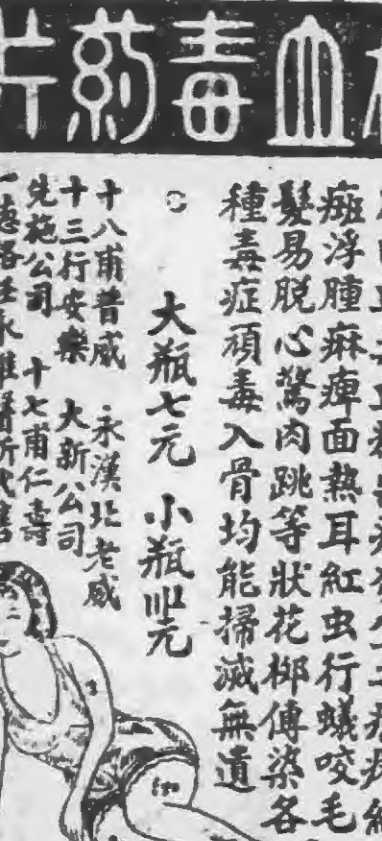 血毒葯片
癍浮腫麻痺面熱耳紅虫行蟻咬毛
髮易脫心驚肉跳等狀花柳傳染各
種毒症頑毒入骨均能掃滅無遺
大瓶七元 小瓶元
十八甫普威 永漢北老威
十三行安樂 大新公司
先施公司 十七甫仁壽